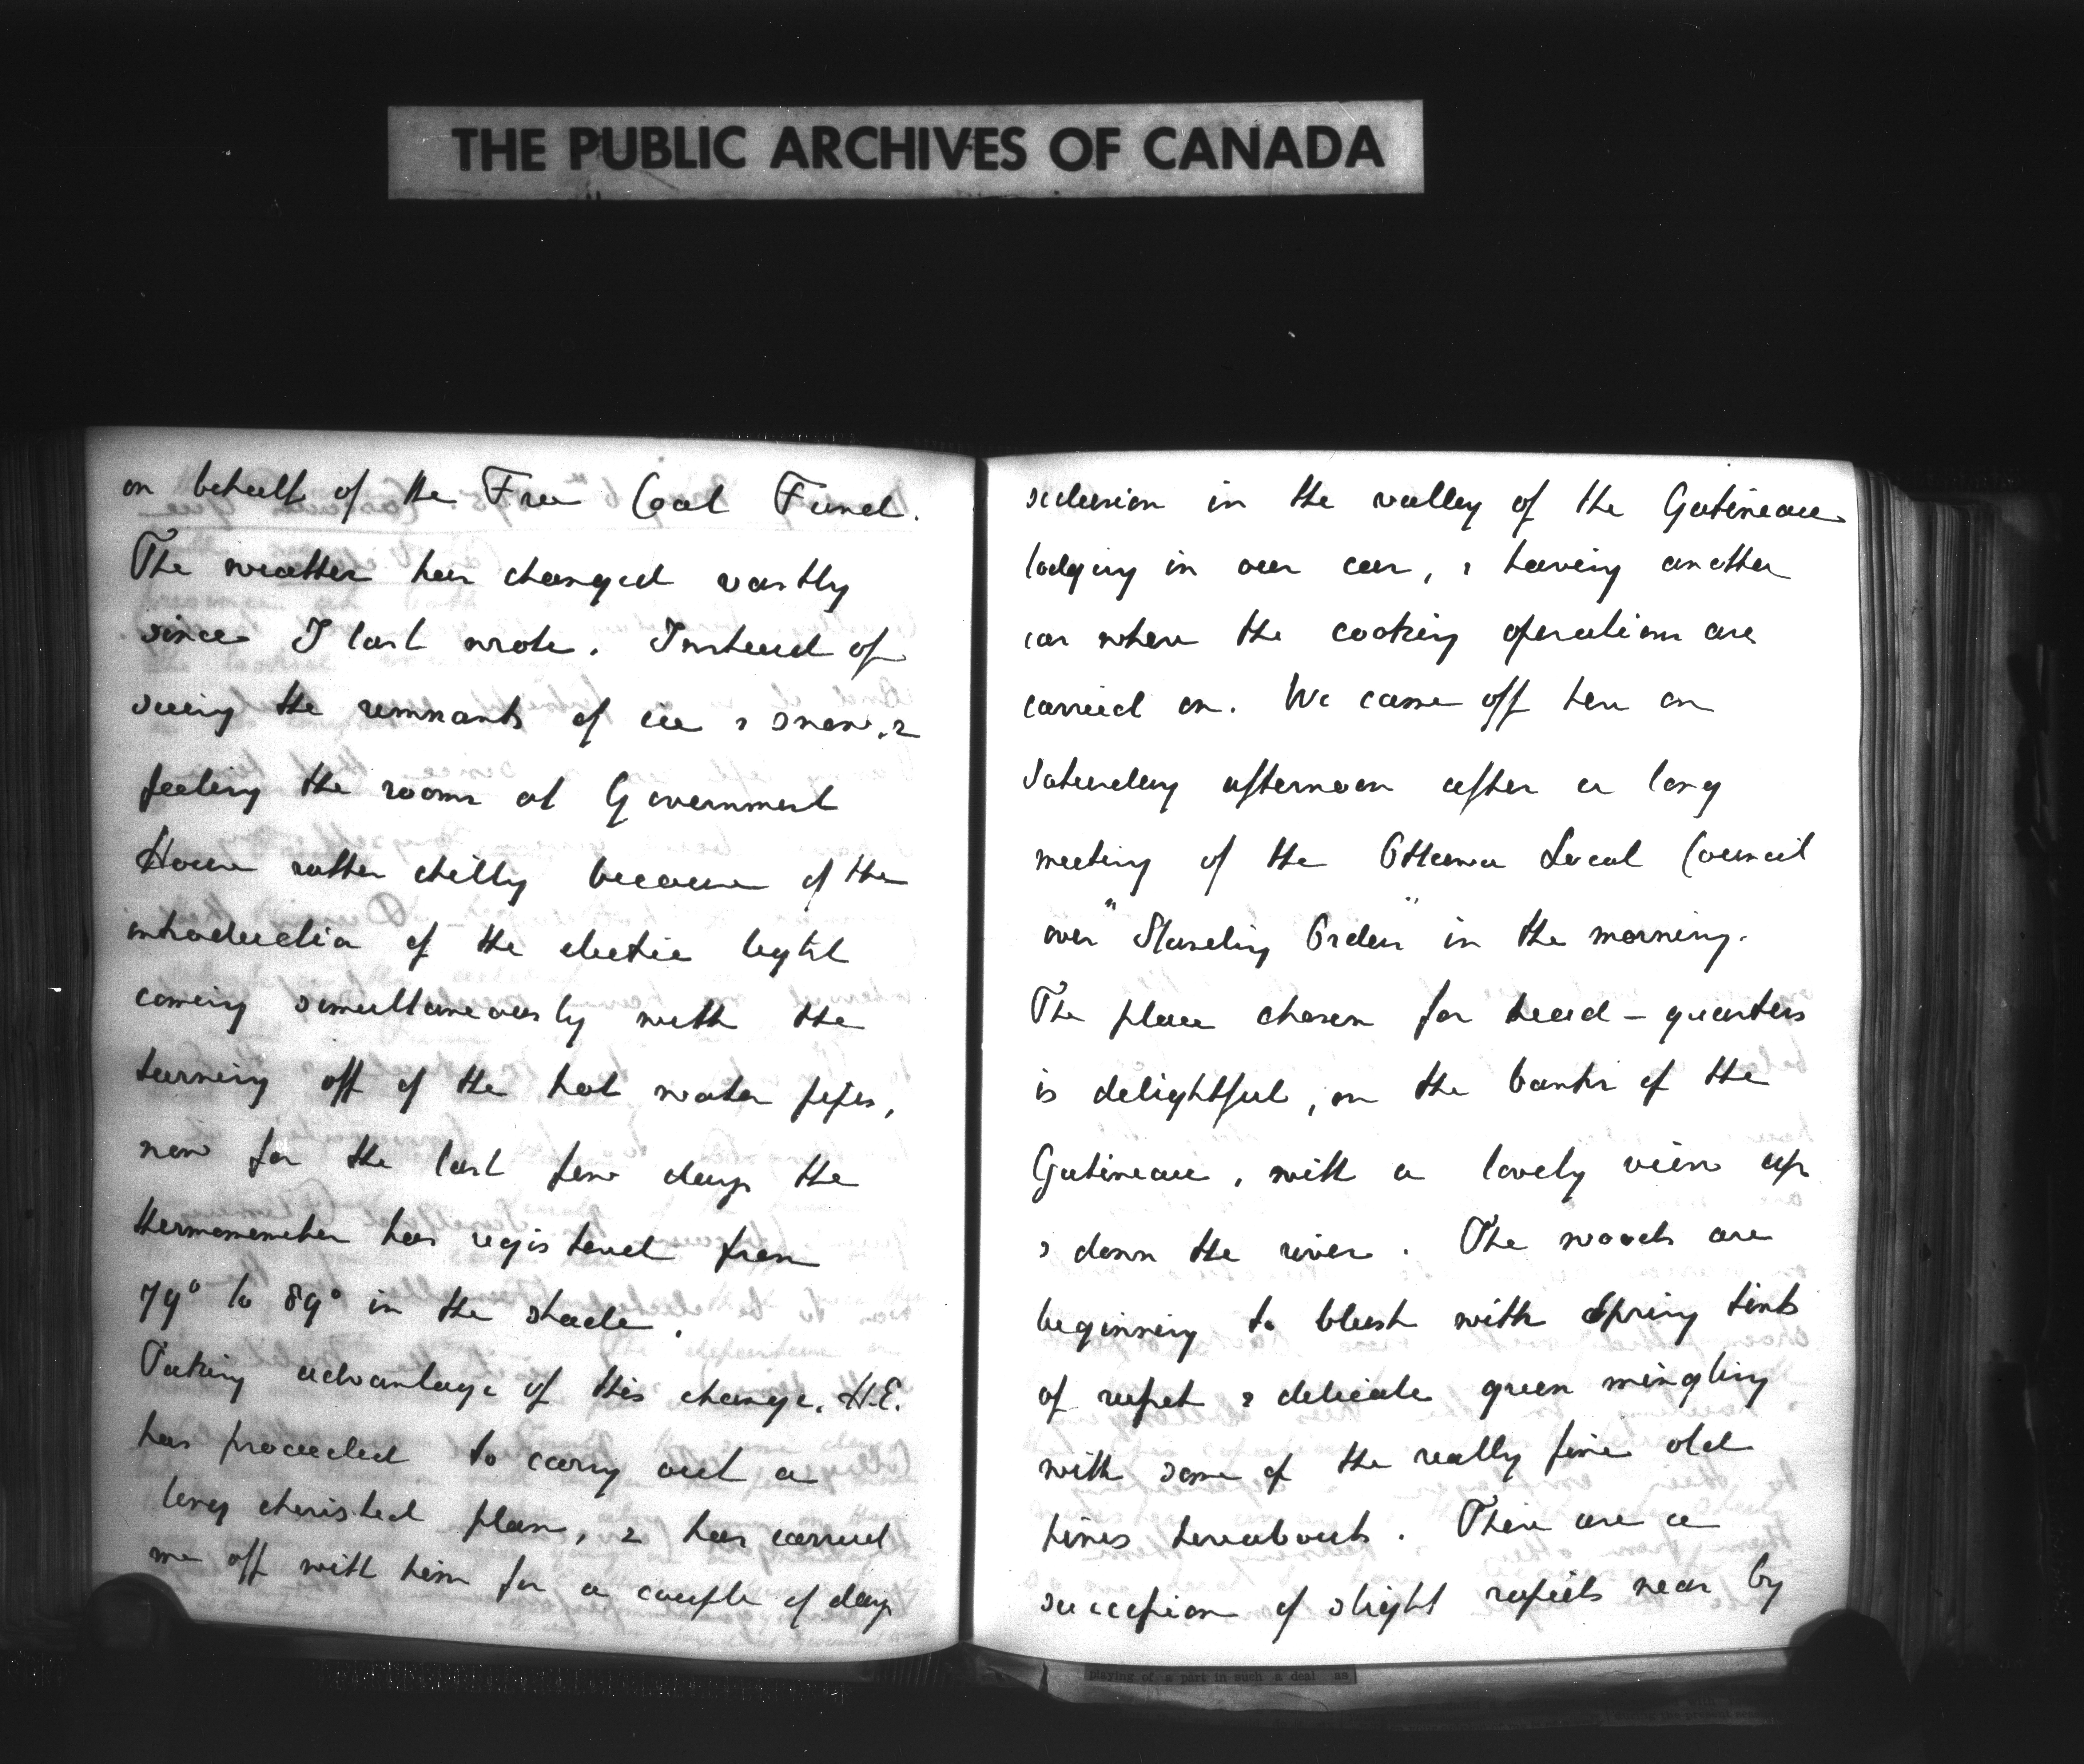 THE PUBLIC ARCHIVES OF CANADA
on behalf of the Free Coal Fund.
The weather has changed vastly
since I last wrote. Instead of
seeing the remnants of ice & snow, &
feeling the rooms at Government
House rather chilly because of the
introduction of the electric light
coming simultaneously with the
turning off of the hot water pipes,
now for the last few days the
thermometer has registered from
79° to 89° in the shade.
Taking advantage of this change, H.E.
has proceeded to carry out a
long cherished plan, & has carried
me off with him for a couple of days
seclusion in the valley of the Gatineau
lodging in our car, & having another
car where the cooking operations are
carried on. We came off here on
Saturday afternoon after a long
meeting of the Ottawa Local Council
over "Standing Orders" in the morning.
The place chosen for head-quarters
is delightful, on the banks of the
Gatineau, with a lovely view up
& down the river. The woods are
beginning to blush with Spring tints
of russet & delicate green mingling
with some of the really fine old
pines hereabouts. There are a
succession of slight rapids near by
playing of a part in such a deal as